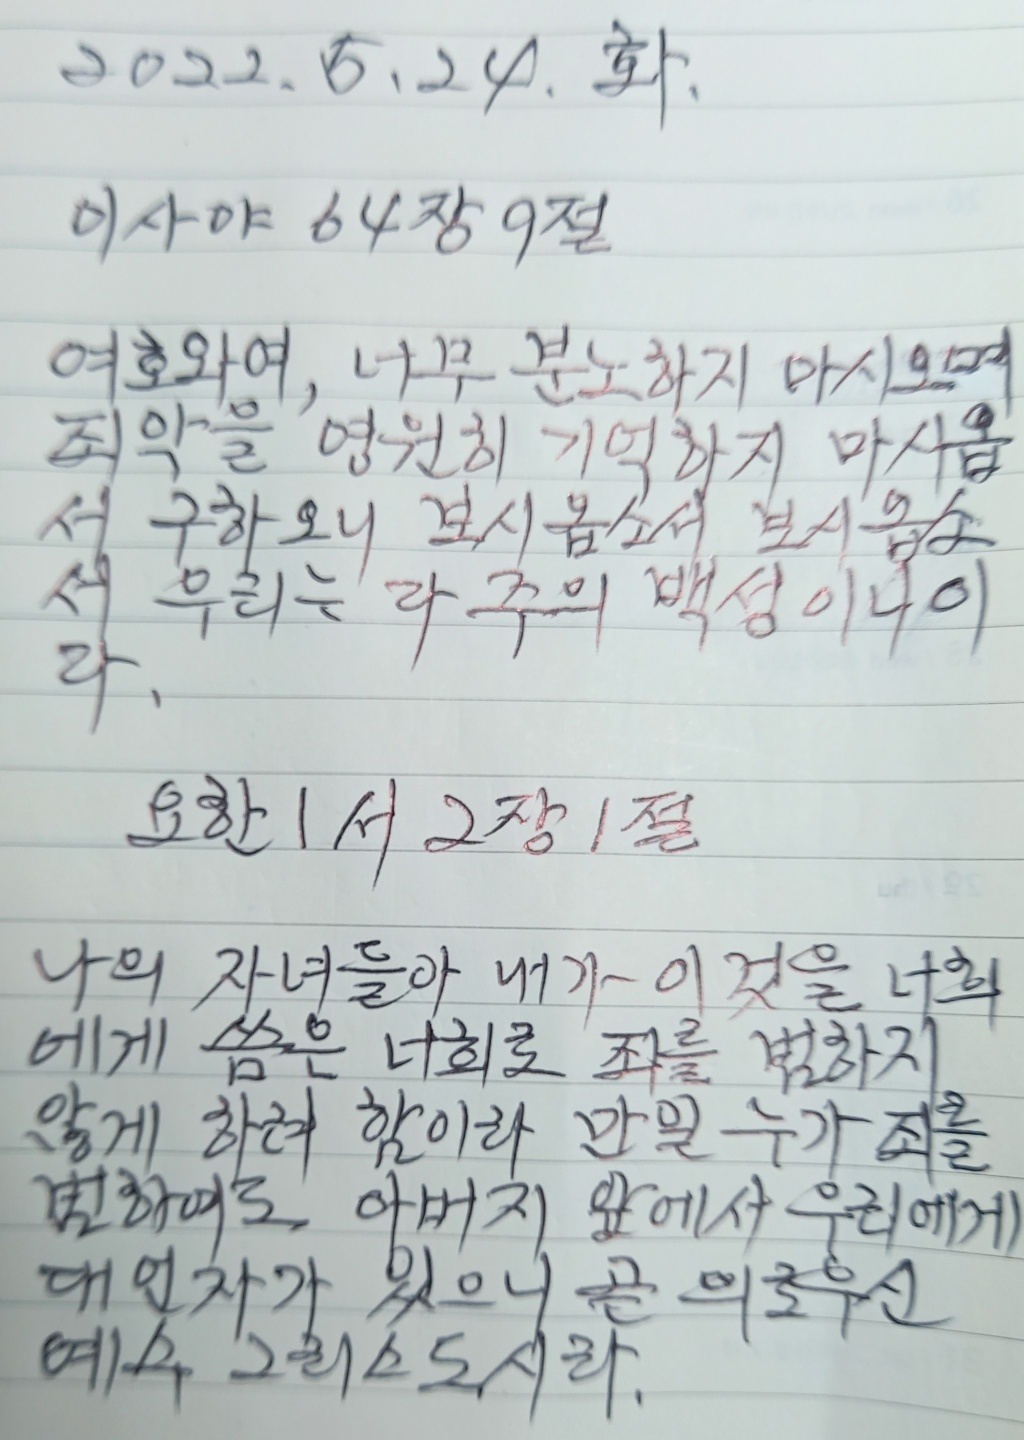 2022. 5. 24. 화.
이사야 64장 9절
여호와여, 너무 분노하지 마시오며
죄악을 영원히 기억하지 마시옵
서 구하오니 보시옵소서 보시옵소
서 우리는 다 주의 백성이니이
다.
요한1서 2장 1절
나의 자녀들아 내가 이것을 너희
에게 씀은 너희로 죄를 범하지
않게 하려 함이라 만일 누가 죄를
범하여도 아버지 앞에서 우리에게
대언자가 있으니 곧 의로우신
예수 그리스도시라.